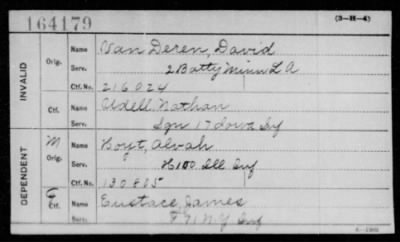 164179
(3-H-4)
INVALID
Orig.
Name Van Deren, David
Serv. 2 Batty Minn L A
Ctf. No. 216024
Ctf.
Name Udell Nathan
Serv. Sgn 17 Iowa Inf
DEPENDENT
M
Orig.
Name Hoyt, Alvah
Serv. H 100 Ill Inf
Ctf. No. 130805
Ctf.
Name Eustace James
Serv. F 71 N Y Inf